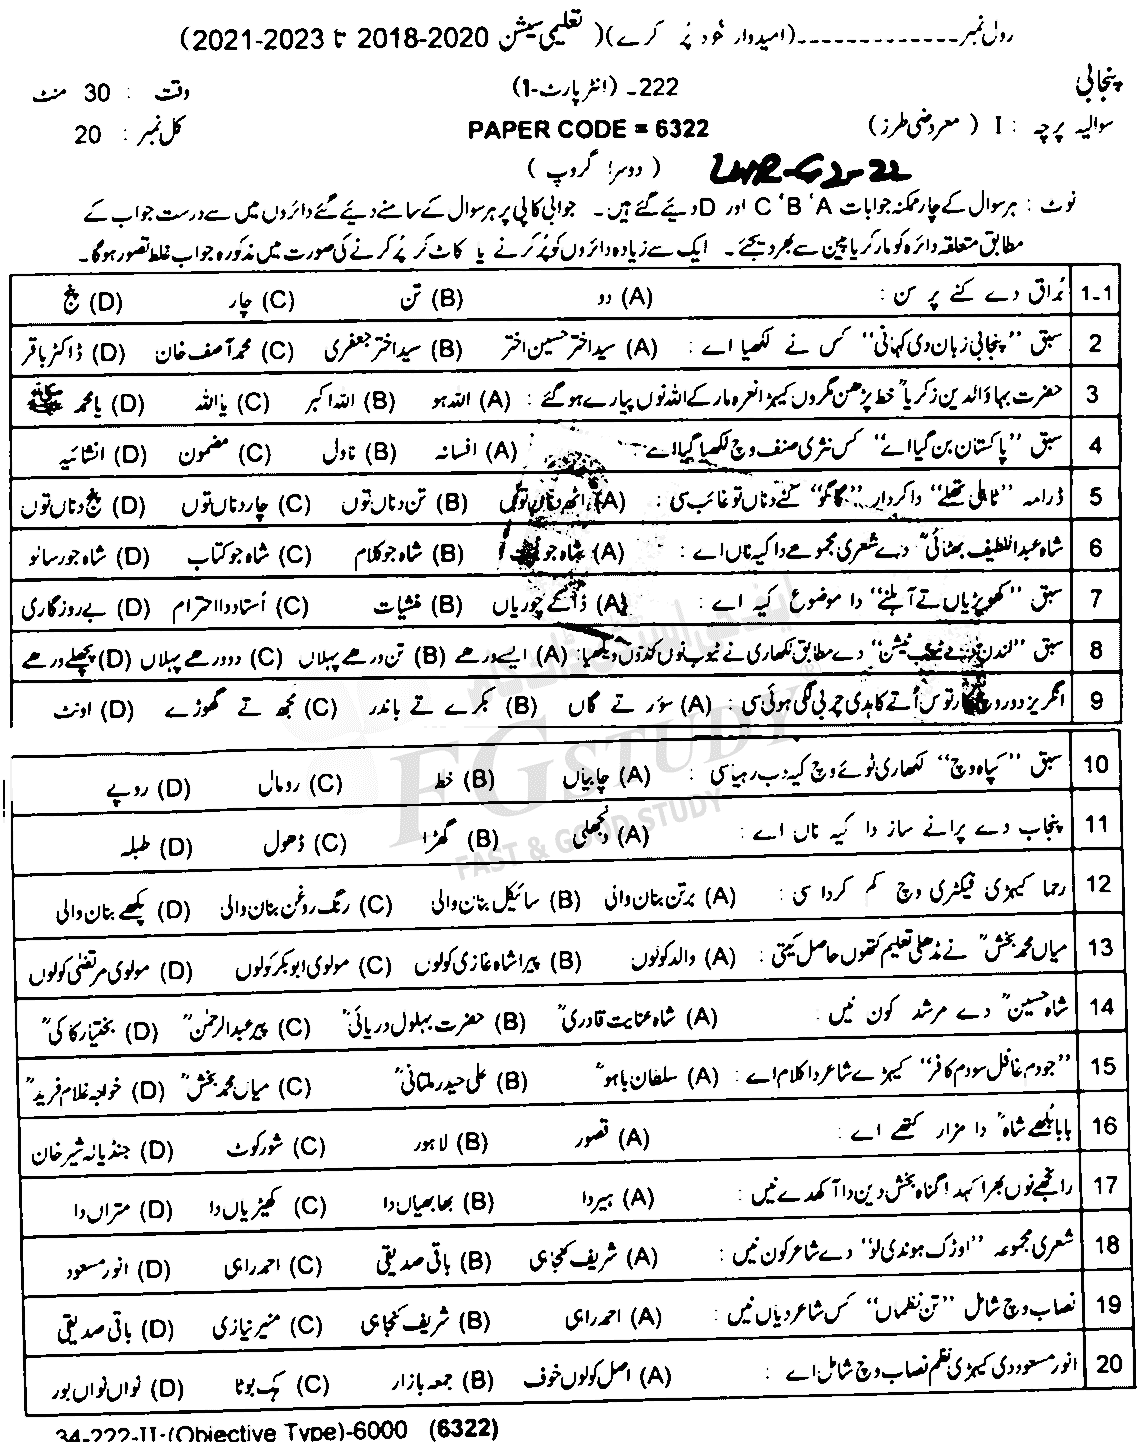 رول نمبر-------------(امیدوار خود پُر کرے)( تعلیمی سیشن 2020-2018 تا 2023-2021)
پنجابی 222۔ (انٹر پارٹ-1) وقت : 30 منٹ
سوالیہ پرچہ : I ( معروضی طرز) PAPER CODE = 6322 کل نمبر : 20
( دوسرا گروپ ) LHR-G2-22
نوٹ : ہر سوال کے چار ممکنہ جوابات A ' B ' C اور D دیئے گئے ہیں۔ جوابی کاپی پر ہر سوال کے سامنے دیئے گئے دائروں میں سے درست جواب کے
مطابق متعلقہ دائرہ کو مارکر یا پین سے بھر دیجئے۔ ایک سے زیادہ دائروں کو پُر کرنے یا کاٹ کر پُر کرنے کی صورت میں مذکورہ جواب غلط تصور ہوگا۔
1-1 بُراق دے کنے پر سن : (A) دو (B) تن (C) چار (D) پنج
2 سبق "پنجابی زبان دی کہانی" کس نے لکھیا اے : (A) سید اختر حسین اختر (B) سید اختر جعفری (C) محمد آصف خان (D) ڈاکٹر باقر
3 حضرت بہاؤالدین زکریاؒ خط پڑھن مگروں کیہڑا نعرہ مار کے اللہ نوں پیارے ہو گئے : (A) اللہ ہو (B) اللہ اکبر (C) یا اللہ (D) یا محمد ﷺ
4 سبق "پاکستان بن گیا اے" کس نثری صنف وچ لکھیا گیا اے : (A) افسانہ (B) ناول (C) مضمون (D) انشائیہ
5 ڈرامہ "ٹاہلی تھلے" دا کردار "گاگو" کنے دناں تو غائب سی : (A) اٹھ دناں توں (B) تن دناں توں (C) چار دناں توں (D) پنج دناں توں
6 شاہ عبداللطیف بھٹائیؒ دے شعری مجموعے دا کیہ ناں اے : (A) شاہ جو (B) شاہ جو کلام (C) شاہ جو کتاب (D) شاہ جو رسالو
7 سبق "کھوپڑیاں تے آہلنے" دا موضوع کیہ اے : (A) ڈاکے چوریاں (B) منشیات (C) اُستاد دا احترام (D) بے روزگاری
8 سبق "لندن دے ٹیوب نیشن" دے مطابق لکھاری نے ٹیوب نوں کدوں دیکھیا: (A) ایسے ورھے (B) تن ورھے پہلاں (C) دو ورھے پہلاں (D) پچھلے ورھے
9 انگریز دور وچ کارتوس اُتے کاہدی چربی لگی ہوئی سی : (A) سؤر تے گاں (B) بکرے تے باندر (C) مجھ تے گھوڑے (D) اونٹ
10 سبق "کپاہ وچ" لکھاری ٹوئے وچ کیہ دب رہیا سی : (A) چابیاں (B) خط (C) رومال (D) روپے
11 پنجاب دے پرانے ساز دا کیہ ناں اے : (A) ونجھلی (B) گھڑا (C) ڈھول (D) طبلہ
12 رحما کیہڑی فیکٹری وچ کم کردا سی : (A) برتن بنان والی (B) سائیکل بنان والی (C) رنگ روغن بنان والی (D) پکھے بنان والی
13 میاں محمد بخشؒ نے مڈھلی تعلیم کتھوں حاصل کیتی : (A) والد کولوں (B) پیرا شاہ غازی کولوں (C) مولوی ابوبکر کولوں (D) مولوی مرتضیٰ کولوں
14 شاہ حسینؒ دے مرشد کون نیں : (A) شاہ عنایت قادریؒ (B) حضرت بہلول دریائیؒ (C) پیر عبدالرحمٰنؒ (D) بختیار کاکیؒ
15 "جو دم غافل سو دم کافر" کیہڑے شاعر دا کلام اے : (A) سلطان باہوؒ (B) علی حیدر ملتانیؒ (C) میاں محمد بخشؒ (D) خواجہ غلام فریدؒ
16 بابا بُلھے شاہؒ دا مزار کتھے اے : (A) قصور (B) لاہور (C) شورکوٹ (D) جنڈیالہ شیر خان
17 رانجھے نوں بھرا کہدا گناہ بخش دین دا آکھدے نیں : (A) ہیر دا (B) بھابھیاں دا (C) کھیڑیاں دا (D) متراں دا
18 شعری مجموعہ "اوڑک ہوندی لو" دے شاعر کون نیں : (A) شریف کنجاہی (B) باقی صدیقی (C) احمد راہی (D) انور مسعود
19 نصاب وچ شامل "تن نظماں" کس شاعر دیاں نیں : (A) احمد راہی (B) شریف کنجاہی (C) منیر نیازی (D) باقی صدیقی
20 انور مسعود دی کیہڑی نظم نصاب وچ شامل اے : (A) اصل کولوں خوف (B) جمعہ بازار (C) ہک بوٹا (D) نواں نواں بور
34-222-II-(Objective Type)-6000 (6322)
FG STUDY
FAST & GOOD STUDY